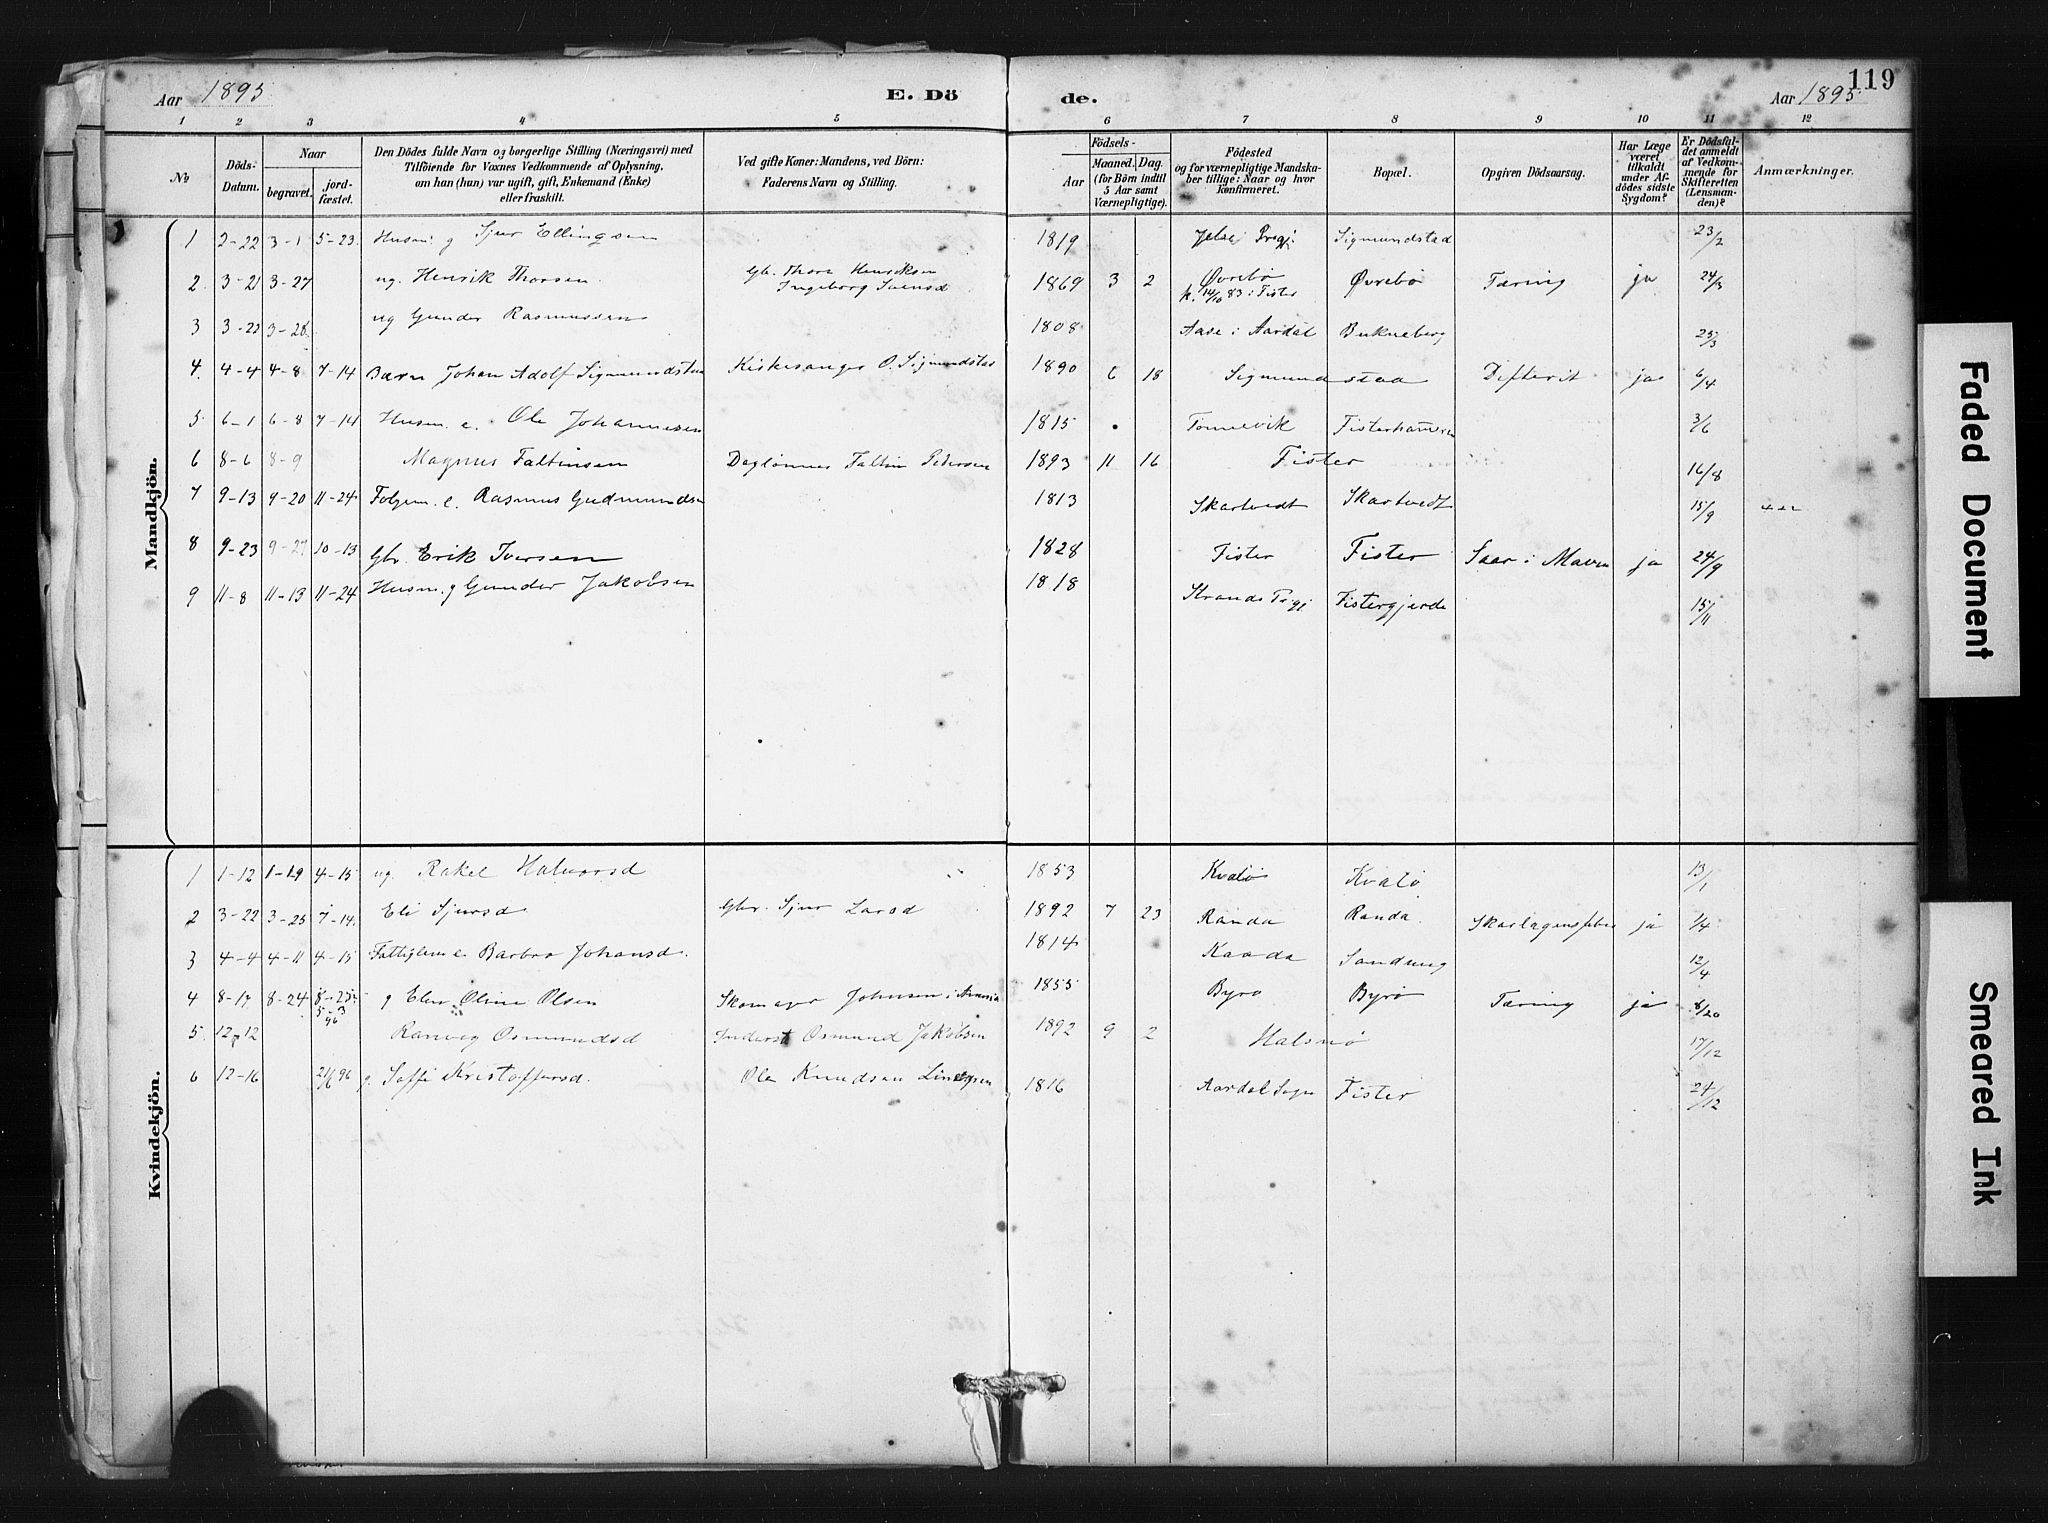 119
Aar 1895. E. Dö de. Aar 1895.
1 2 3 4 5 6 7 8 9 10 11 12
№ Döds-Datum. Naar begravet. jord-fæstet. Den Dödes fulde Navn og borgerlige Stilling (Næringsvei) med Tilföiende for Voxnes Vedkommende af Oplysning, om han (hun) var ugift, gift, Enkemand (Enke) eller fraskilt. Ved gifte Koner: Mandens, ved Börn: Faderens Navn og Stilling. Födsels- Aar Maaned. Dag. (for Börn indtil 5 Aar samt Værnepligtige). Födested og for værnepligtige Mandskaber tillige: Naar og hvor konfirmeret. Bopæl. Opgiven Dödsaarsag. Har Læge været tilkaldt under Afdödes sidste Sygdom? Er Dödsfaldet anmeldt af Vedkommende for Skifteretten (Lensmanden)? Anmærkninger.
Mandkjön.
1 2-22 3-1 5-23 Husm. g Sjur Ellingsen 1819 Jelse Prgj. Sigmundstad 23/2
2 3-21 3-27 ug. Henrik Thorsen Gbr. Thore Henriksen 1869 3 2 Øvrebø Øvrebø Tæring ja 24/3
Ingeborg Svensd k. 14/10 83 i Fister
3 3-22 3-28 ug Gunder Rasmussen 1808 Aase i Aardal Bukneberg 25/3
4. 4-4 4-8 7-14 Barn Johan Adolf Sigmundstad Kirkesanger O. Sigmundstad 1890 6 18 Sigmundstad Difterit ja 6/4
5 6-1 6-8 7-14 Husm. e. Ole Johannesen 1815 Tonnevik Fisterhammeren 3/6
6 8-6 8-9 Magnus Faltinsen Daglønner Faltin Pedersen 1893 11 16 Fister 16/8
7 9-13 9-20 11-24 Folgem. e. Rasmus Gudmundsen 1813 Skartvedt Skartvedt 15/9
8 9-23 9-27 10-13 Gbr. Erik Iversen 1828 Fister Fister Saar i Maven ja 24/9
9 11-8 11-13 11-24 Husm. g Gunder Jakobsen 1818 Strands Prgj Fistergjerde 15/11
Kvindekjön.
1 1-12 1-19 4-15 ug. Rakel Halvorsd 1853 Kvalø Kvalø 13/1
2 3-22 3-25 7-14. Eli Sjursd Gbr. Sjur Larsd 1892 7 23 Randa Randa Skarlagensfeber ja 1/4
3 4-4 4-11 4-15 Fattiglem e Barbro Johansd. 1814 Kaada Sandung 12/4
4 8-17 8-24 8-25 g Elen Oline Olsen Skomager Johnsen i Amerika 1855 Byrø Byrø Tæring ja 8/20
5-3
96
5. 12-12 Ranveig Osmundsd Inderst Osmund Jakobsen 1892 9 2 Halsnø 17/12
6 12-16 21/6 96 g. Soffi Kristoffersd. Ole Knudsen 1816 Aardal Sogn Fister 24/12
Faded Document
Smeared Ink